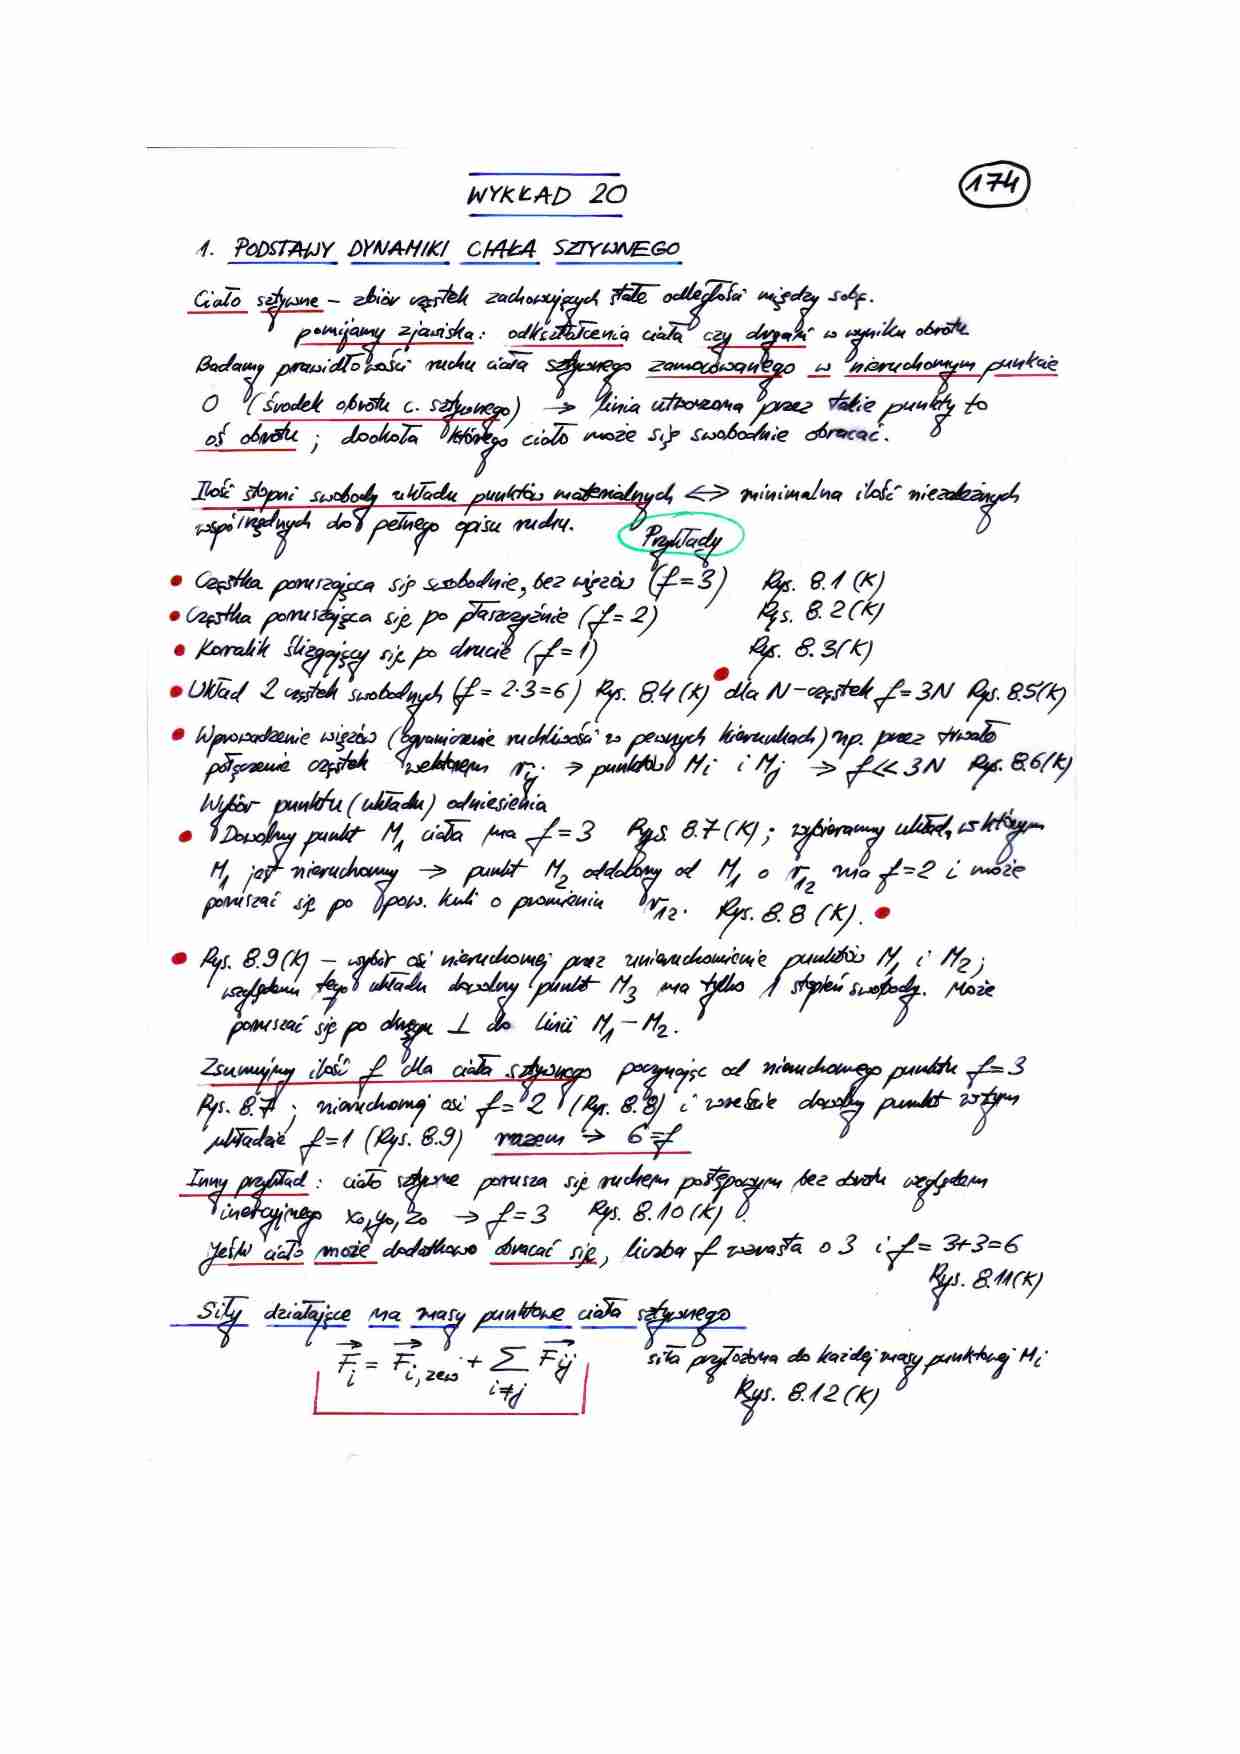 WYKŁAD 20
174
1. PODSTAWY DYNAMIKI CIAŁA SZTYWNEGO
Ciało sztywne – zbiór cząstek zachowujących stałe odległości między sobą.
pomijamy zjawiska: odkształcenia ciała czy drgań w wyniku obrotu
Badamy prawidłowości ruchu ciała sztywnego zamocowanego w nieruchomym punkcie
O (środek obrotu c. sztywnego) → linia utworzona przez takie punkty to
oś obrotu; dookoła którego ciało może się swobodnie obracać.
Ilość stopni swobody układu punktów materialnych <=> minimalna ilość niezależnych
współrzędnych do pełnego opisu ruchu.
Przykłady
• Cząstka poruszająca się swobodnie, bez więzów (f=3) Rys. 8.1 (K)
• Cząstka poruszająca się po płaszczyźnie (f=2) Rys. 8.2(K)
• Koralik ślizgający się po drucie (f=1) Rys. 8.3(K)
• Układ 2 cząstek swobodnych (f= 2·3=6) Rys. 8.4(K) • dla N-cząstek f=3N Rys. 8.5(K)
• Wprowadzenie więzów (ograniczenie ruchliwości w pewnych kierunkach) np. przez trwałe
połączenie cząstek wektorem r_ij → punktów M_i i M_j → f << 3N Rys. 8.6(K)
Wybór punktu (układu) odniesienia
• Dowolny punkt M_1 ciała ma f=3 Rys. 8.7(K); wybieramy układ, w którym
M_1 jest nieruchomy → punkt M_2 oddalony od M_1 o r_12 ma f=2 i może
poruszać się po pow. kuli o promieniu r_12. Rys. 8.8 (K). •
• Rys. 8.9(K) – wybór osi nieruchomej przez unieruchomienie punktów M_1 i M_2;
względem tego układu dowolny punkt M_3 ma tylko 1 stopień swobody. Może
poruszać się po okręgu ⊥ do linii M_1 – M_2.
Zsumujmy ilość f dla ciała sztywnego poczynając od nieruchomego punktu f=3
Rys. 8.7; nieruchomej osi f= 2 (Rys. 8.8) i wreszcie dowolny punkt w tym
układzie f=1 (Rys. 8.9) razem → 6=f
Inny przykład: ciało sztywne porusza się ruchem postępowym bez obrotu względem
inercyjnego x_0, y_0, z_0 → f=3 Rys. 8.10(K).
Jeśli ciało może dodatkowo obracać się, liczba f wzrasta o 3 i f= 3+3=6
Rys. 8.11(K)
Siły działające na masy punktowe ciała sztywnego
\vec{F}_i = \vec{F}_{i, zew} + \sum_{i≠j} \vec{F}_{ij} siła przyłożona do każdej masy punktowej M_i
Rys. 8.12(K)